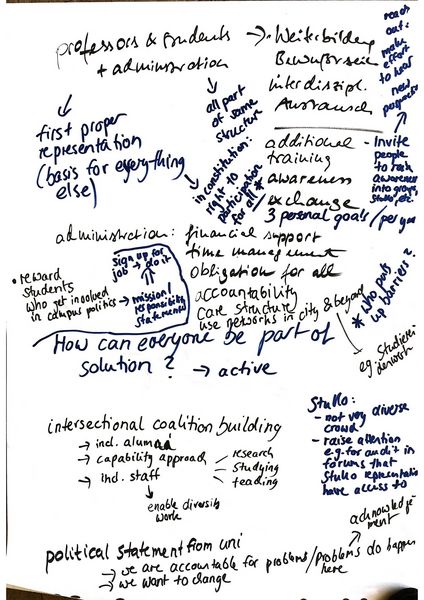 professors & students
+ administration
→ Weiterbildung
Bewusstsein
interdiszipl.
Austausch
reach
out:
make
effort
to hear
new
perspectives
all part
of same
structure
first proper
representation
(basis for everything
else)
in constitution:
right to
participation
for all *
additional
training
awareness
exchange
3 personal goals / per year
Invite
people
to
awareness
into groups,
Stuko, etc.
administration: financial support
time management
obligation for all
accountability
care structure
use networks in city & beyond
e.g. Studieren
* who puts
up barriers?
sign up for
job → do it
→ mission/
responsibility
statements
• reward
students
who get involved
in campus politics
How can everyone be part of
solution? → active
intersectional coalition building
→ incl. alumni
→ capability approach
research
studying
teaching
→ incl. staff
enable diversity
work
Stuko:
- not very diverse
crowd
- raise attention
e.g. for audit in
forums that
Stuko representatives
have access to
political statement from uni
→ we are accountable for problems / problems do happen
here
→ we want to change
acknowledge-
ment